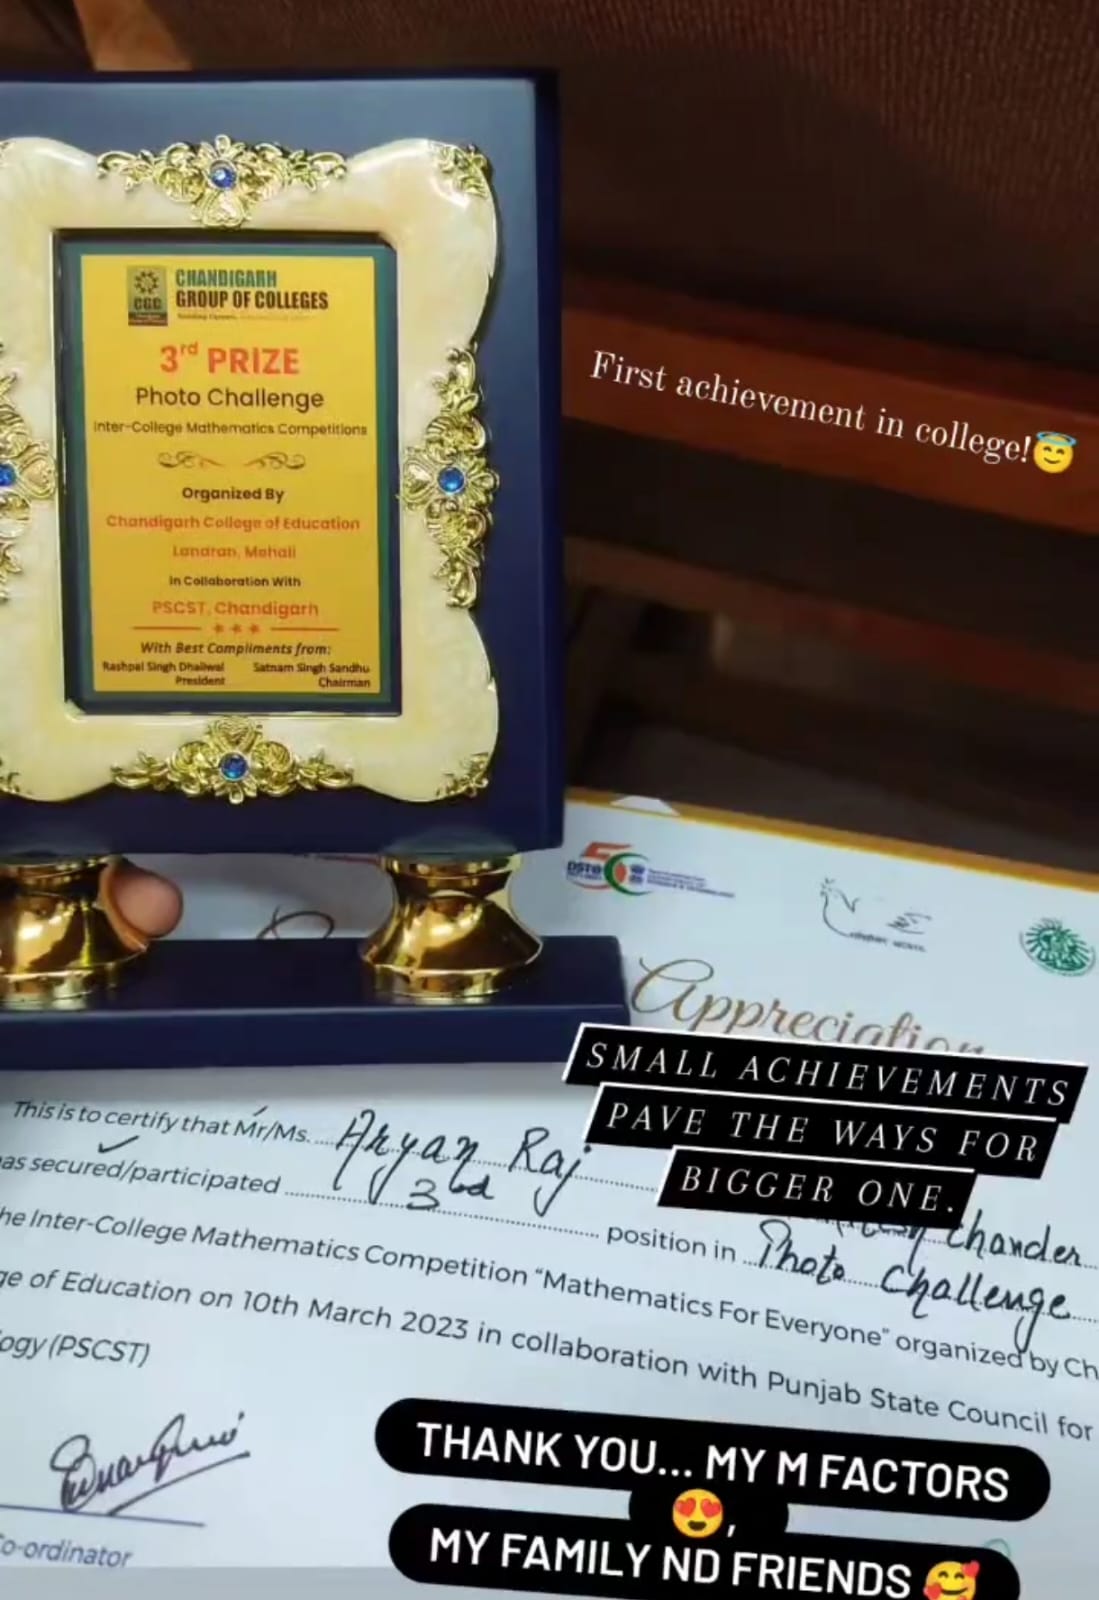 CGC
CHANDIGARH
GROUP OF COLLEGES
3rd PRIZE
Photo Challenge
Inter-College Mathematics Competitions
Organized By
Chandigarh College of Education
Landran, Mohali
In Collaboration With
PSCST, Chandigarh
With Best Compliments from:
Rashpal Singh Dhaliwal Satnam Singh Sandhu
President Chairman
First achievement in college!😇
DST
Appreciation
SMALL ACHIEVEMENTS
PAVE THE WAYS FOR
BIGGER ONE.
This is to certify that Mr/Ms. Aryan Raj
Chander
as secured/participated 3rd position in Photo Challenge
he Inter-College Mathematics Competition “Mathematics For Everyone” organized by Ch
ge of Education on 10th March 2023 in collaboration with Punjab State Council for
ogy (PSCST)
o-ordinator
THANK YOU... MY M FACTORS
😍,
MY FAMILY ND FRIENDS 🥰